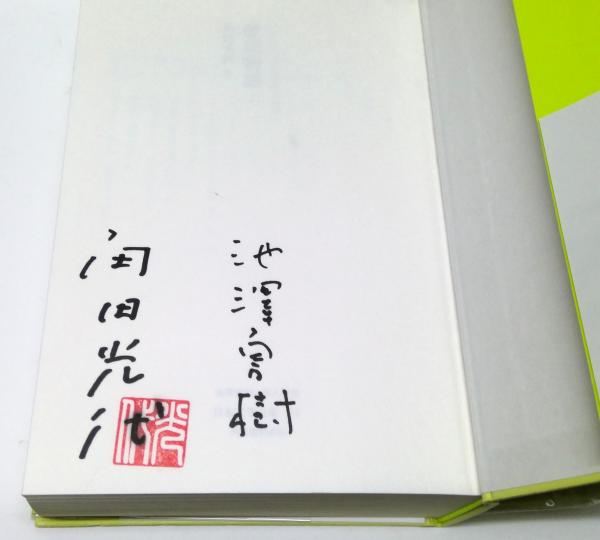 池澤夏樹
角田光代
光代